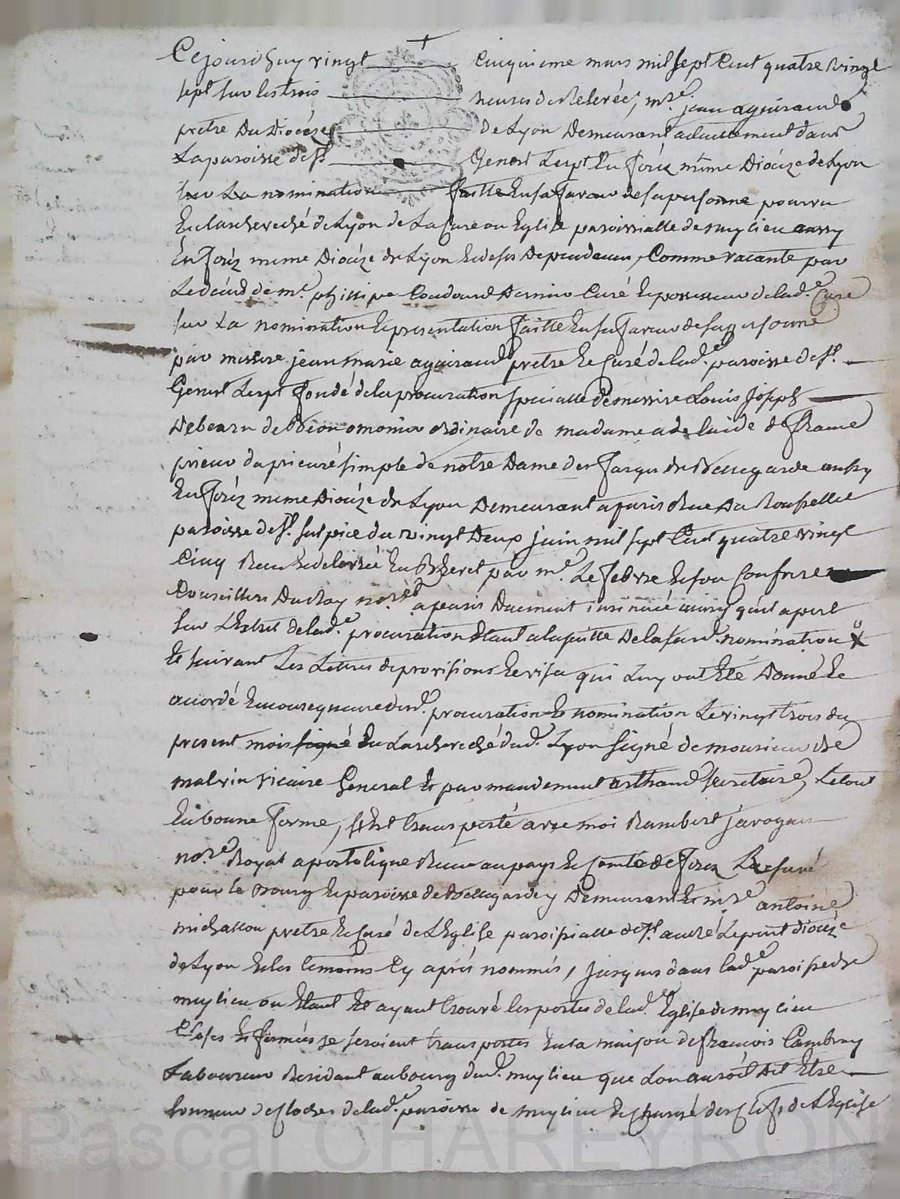 Cejourdhuy vingt cinquieme mars mil sept Cent quatre vingt
sept sur les trois heures de Relevée, mre jean aguiraud
pretre Du Dioceze De Lyon Demeurant actuellement dans
La paroisse de st Genest Lerpt En forez même Dioceze de Lyon
sur La nomination faitte En sa faveur de sa personne pourvu
En L'archeveché de Lyon de La Cure ou Eglise paroissialle de mylieu aussy
En forez même Dioceze de Lyon et de ses Dependances, Comme vacante par
Le decéd de mre philippe Coudourd Dernier Curé et possesseur de lade Cure
sur La nomination et presentation faitte En sa faveur de sa personne
par messire jean marie aguiraud pretre et Curé de lade paroisse de st
Genest Lerpt fondé de la procuration specialle De messire Louis Joseph
De bearn de omonier ordinaire de madame adelaide de france
prieur du prieuré simple de notre Dame des farges de Bellegarde aussy
En forez même Dioceze de Lyon Demeurant a paris Rue Du
paroisse de st sulpice du vingt Deux juin mil sept Cent quatre vingt
Cinq Recue et delivrée En Brevet par me Le febvre et son Confrere
Conseillers Du Roy nores a paris Duement insinuée ainsy qu'il apert
sur L'Extrait de lade procuration Etant a la suitte De la sude nomination X
Et suivant Les Lettres de provisions et visa qui Luy ont Eté Donné et
accordé En consequence desd. procuration et nomination Le vingt trois du
present mois signé En L'archeveché dud. Lyon signé de monsieur de
malvin vicaire General Et par mandement arthaud secretaire, Le tout
En bonne forme, s'Est transporté avec moi Rambert javogues
nore Royal apostolique Recu au pays et Comté de forez Reservé
pour le Bourg et paroisse de Bellegarde y Demeurant Et mre antoine
michallon pretre et Curé de L'Eglise paroissialle de st andré Lepuit dioceze
de Lyon et les temoins Cy aprés nommés, jusques dans lade paroisse de
mylieu ou Etant Et ayant trouvé les portes de lade Eglise de mylieu
Closes Et fermées se seroient transportés En la maison de francois Cambray
Laboureur Residant au bourg dud. mylieu que L'on auroit dit Etre
sonneur de Cloches de lade paroisse de mylieu et chargé des Clefs de L'Eglise
Pascal CHAREYRON